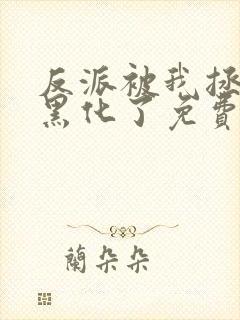 反派被我拯
黑化了免費
蘭朵朵